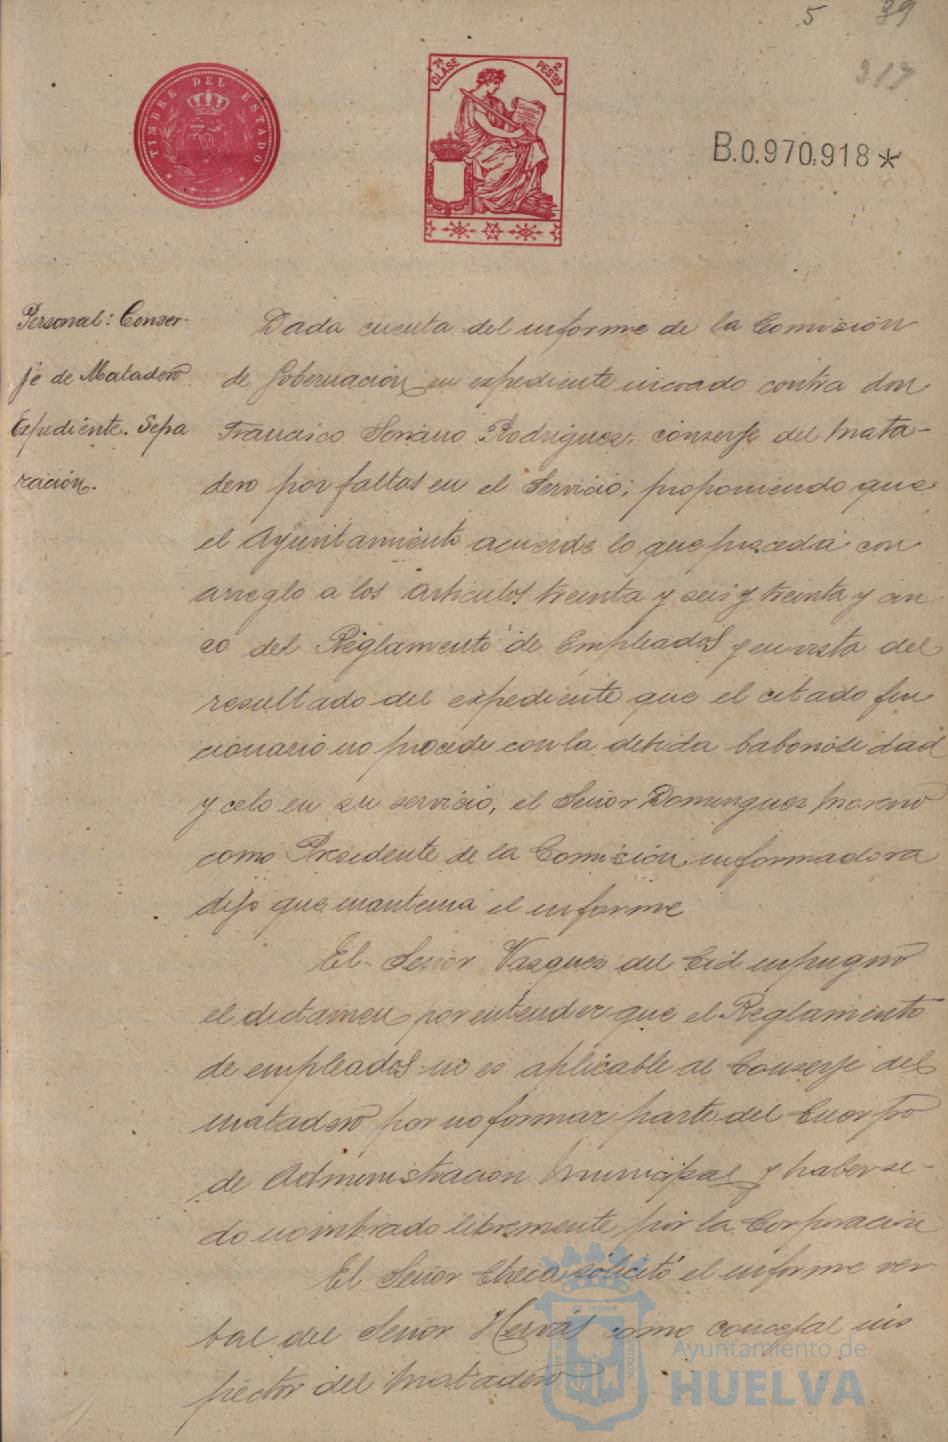 5 39
317
TIMBRE DEL ESTADO
7ª CLASE 2 PESTAS
B.0.970,918*
Personal: Conser-
je de Matadero
Expediente. Sepa
ración.
Dada cuenta del informe de la Comisión
de Gobernación en expediente incoado contra don
Francisco Soriano Rodriguez, conserje del Mata-
dero por faltas en el Servicio; proponiendo que
el Ayuntamiento acuerde lo que proceda con
arreglo a los articulos treinta y seis y treinta y cin
co del Reglamento de Empleados y en vista del
resultado del expediente que el citado fun
cionario no procede con la debida laboriosidad
y celo en su servicio, el Señor Dominguez Moreno
como Presidente de la Comisión informadora
dijo que mantenia el informe
El Señor Vazquez del Cid inpugnó
el dictamen por entender que el Reglamento
de empleados no es aplicable al Conserje del
matadero por no formar parte del Cuerpo
de Administracion Municipal y haber se-
do nombrado libremente por la Corporación
El Señor Checa solicitó el informe ver
bal del Señor Hervás como concejal ins
pector del Matadero
Ayuntamiento de
HUELVA